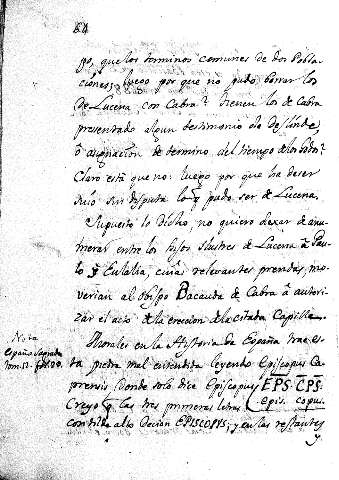 64
go, que los terminos comunes de dos Pobla-
ciones; luego por que no pudo borrar los
de Lucena con Cabra? tienen los de Cabra
presentado algun testimonio de deslinde,
ô asignacion de termino del tiempo de los Godos?
Claro está que no: luego por que ha de ser
suio sin disputa lo q pudo ser de Lucena.
Supuesto lo dicho, no quiero dexar de anu-
merar entre los hijos Ilustres de Lucena â Pau-
lo y Eulalia, cuias relevantes prendas, mo-
verian al obispo Bacauda de Cabra â autori-
zar el acto de la ereccion de la citada Capilla.
Nota
España Sagrada
tom. 12. fol.
Morales en la Historia de España trae es-
ta piedra mal entendida leyendo Episcopus Ca-
prensis donde solo dice Episcopus (EPS. CPS.
Epis. copus.
Creyo q las tres primeras letras
con tilde alto decian EPISCOPUS; y en las restantes
y